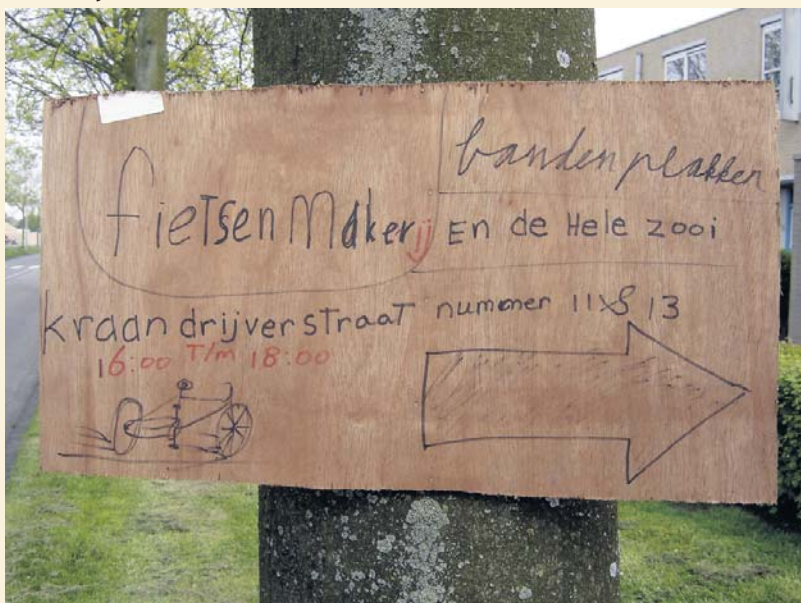 bandenplakken
fietsenMakerij En de Hele zooi
kraandrijverstraat nummer 11 & 13
16:00 T/m 18:00